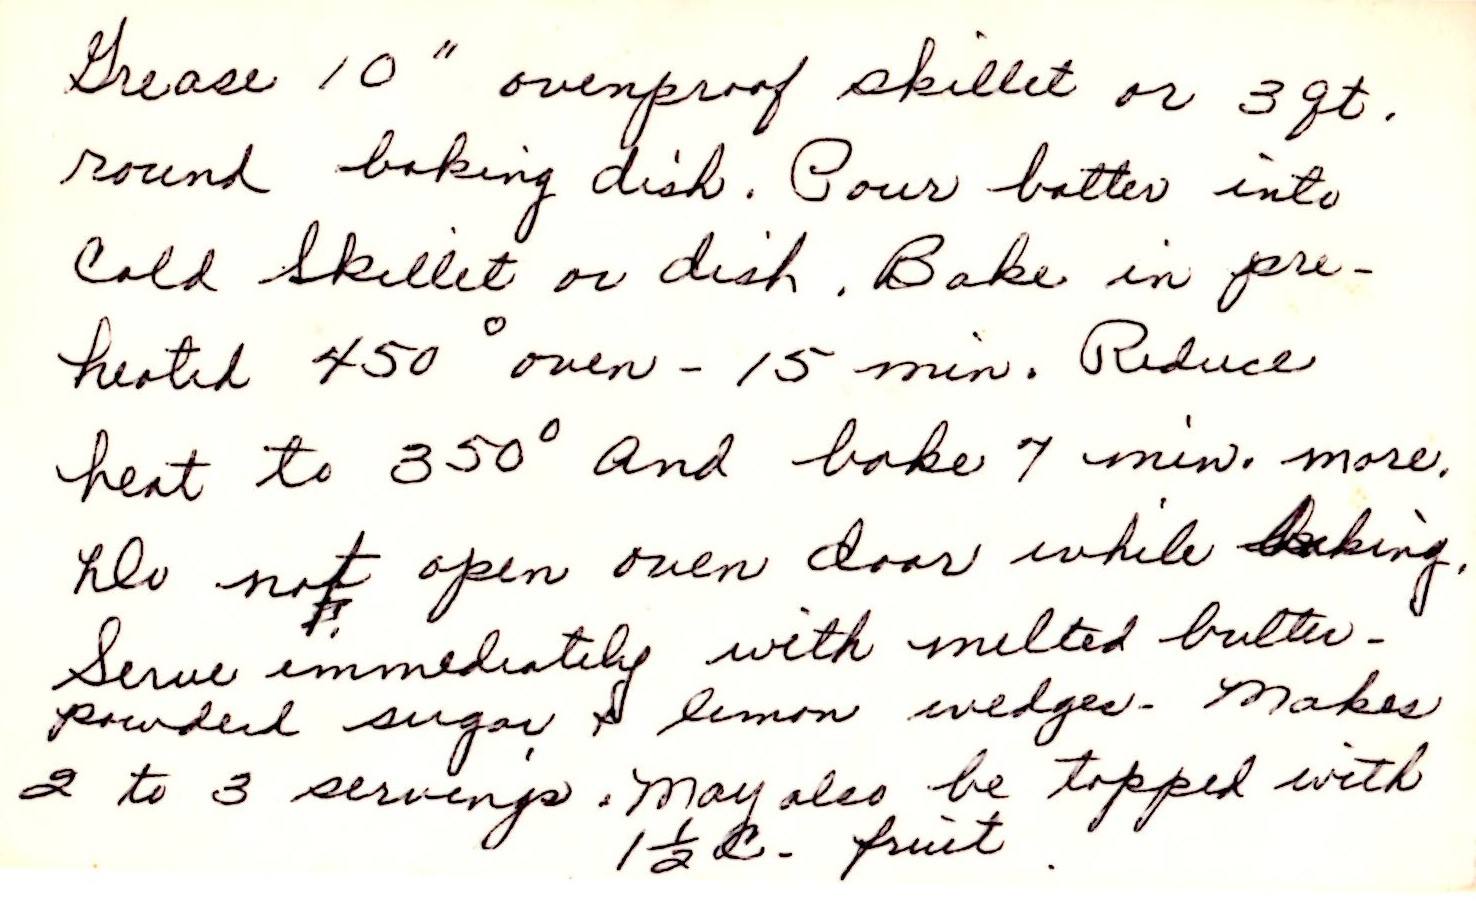 Grease 10" ovenproof skillet or 3 qt.
round baking dish. Pour batter into
Cold Skillet or dish. Bake in pre-
heated 450° oven - 15 min. Reduce
heat to 350° and bake 7 min. more.
Do not open oven door while baking.
Serve immediately with melted butter -
powderd sugar & lemon wedges - Makes
2 to 3 servings. May also be topped with
1 1/2 C. fruit.